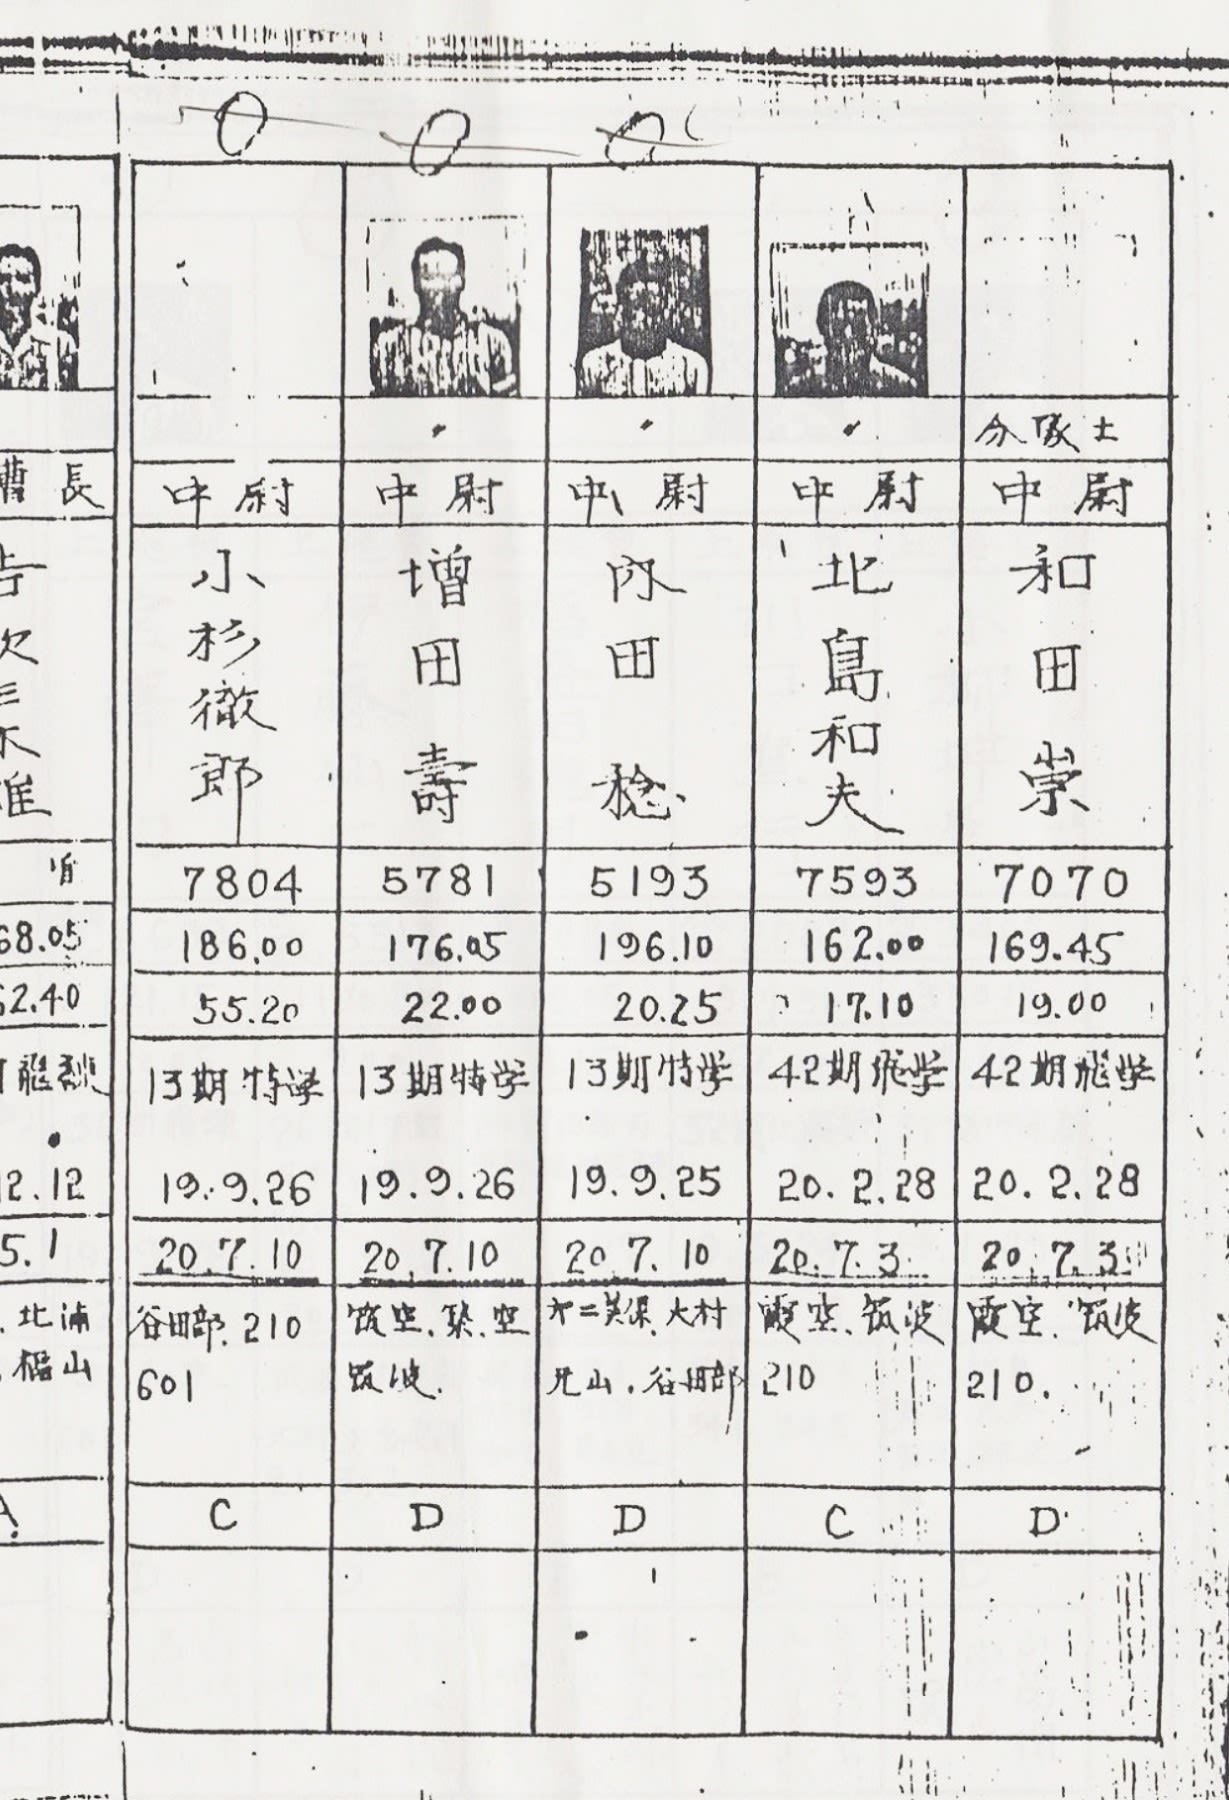 分隊士
中尉 中尉 中尉 中尉 中尉
曹長
和田崇
北島和夫
内田稔
増田壽
小杉徹郎
7804 5781 5193 7593 7070
68.05 186.00 176.05 196.10 162.00 169.45
62.40 55.20 22.00 20.25 17.10 19.00
13期特学 13期特学 13期特学 42期飛学 42期飛学
12.12 19.9.26 19.9.26 19.9.25 20.2.28 20.2.28
5.1 20.7.10 20.7.10 20.7.10 20.7.3 20.7.3
北浦 谷田部.210 筑空. 空 大村 霞空、筑波 霞空.筑波
山 601 筑波. 元山.谷田部 210 210.
A. C D D C D